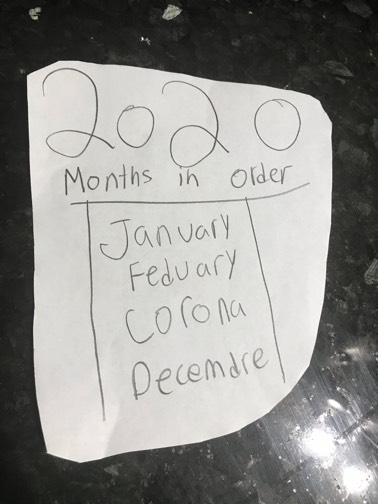 2020
Months in order
January
Feduary
Corona
Decemdre